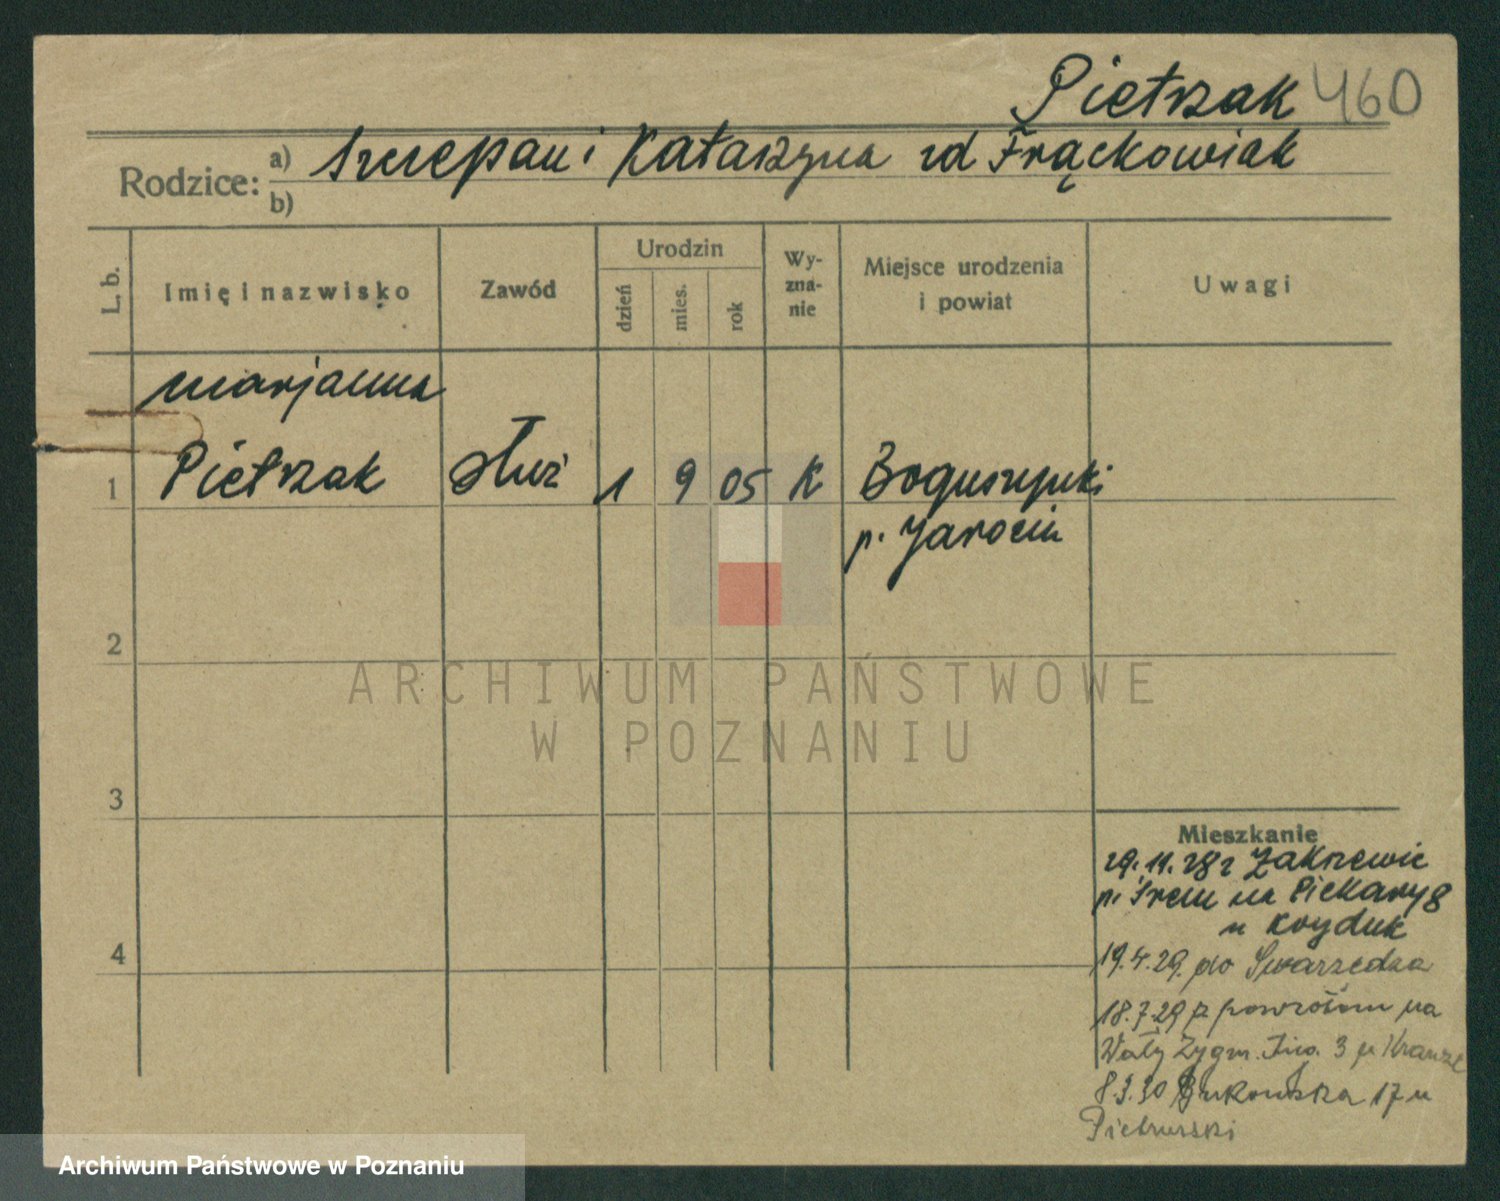 Pietrzak 460
Rodzice: a) Szczepan i Katarzyna zd Frąckowiak
b)
L. b.
Imię i nazwisko
Zawód
Urodzin
dzień
mies.
rok
Wy-
zna-
nie
Miejsce urodzenia
i powiat
Uwagi
Marjanna
1 Pietrzak służ 1 9 05 K Boguszynki
p. Jarocin
2
ARCHIWUM PAŃSTWOWE
W POZNANIU
3
4
Mieszkanie
29.11.28 z Zakrzewic
p. Śrem na Piekary 8
u Kryduk
19.4.29. do Swarzędza
18.7.29 z powrotem na
Wały Zygm. 3 u Krauze
8.3.30 Bukowska 17 u
Archiwum Państwowe w Poznaniu